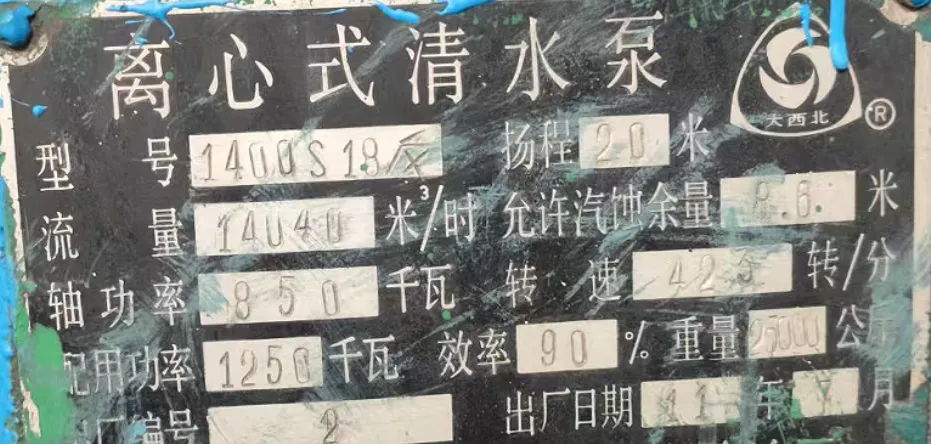 离心式清水泵
大西北 ®
型号 1400S18 扬程 20 米
流量 14040 米³/时 允许汽蚀余量 8.6 米
轴功率 850 千瓦 转速 425 转/分
配用功率 1250 千瓦 效率 90 % 重量 25000 公斤
出厂编号 2 出厂日期 11 年 月